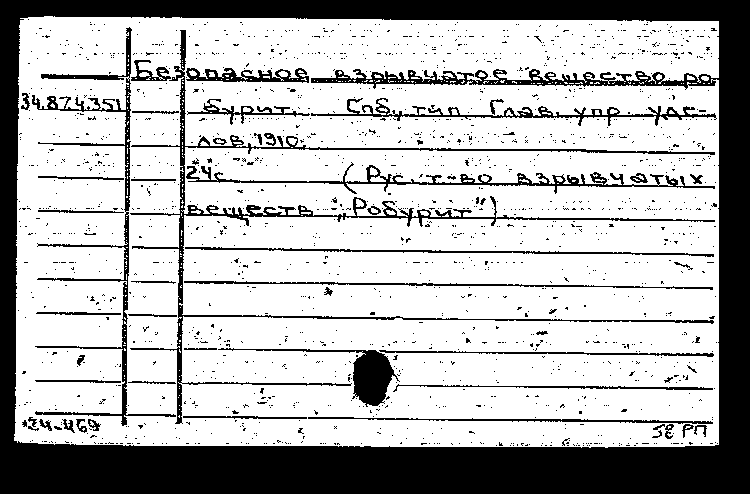 Безопасное взрывчатое вещество ро-
34.87.4.351 бурит. Спб, тип. Глав. упр. уде-
лов, 1910.
24с (Рус. т-во взрывчатых
веществ „Робурит").
24-469
РП